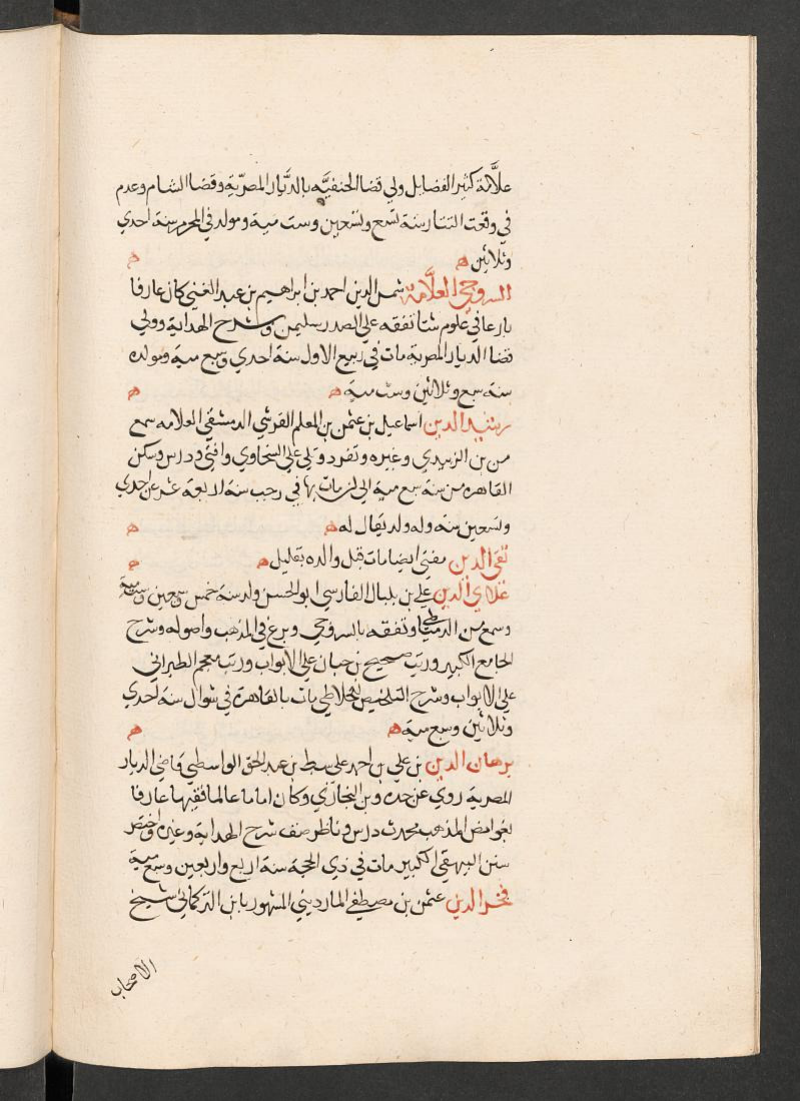 علاَّمة كثير الفضايل ولي قضا الحنفيَّه بالدَّيار المصرّية وقضا الشام وعدم
في وقعت التتار سنة تسع وتسعين وست مية ومولده في المحرم سنة احدي
وثلاثين ه ه
السروجي العلَّامة شمس الدين احمد بن ابراهيم بن عبد الغني كان عارفا
بارعا في علوم شتا تفقه علي الصدر سليمن وشرح الهداية وولي
قضا الديار المصرية مات في ربيع الاول سنة احدي وسبع مية ومولده
سنة سبع وثلاثين وست مية ه ه
رشيد الدين اسماعيل بن عثمن بن المعلم القرشي الدمشقي العلامه سمع
من بن الزبيدي وغيره وتفرد وتلي علي السخاوي وافتي ودرس وسكن
القاهره من سنة سبع مية الي ان مات بها في رجب سنة اربعة عشر عن احدي
وتسعين سنه وله ولد يقال له ه ه
تقي الدين مفتي ايضا مات قبل والده بقليل ه ه
علاي الدين علي بن بلبال الفارسي ابو الحسن ولد سنة خمس وسبعين وستمية
وسمع من الدمياطي وتفقه بالسروجي وبرع في المذهب واصوله وشرح
الجامع الكبير ورتب صحيح بن حبان علي الابواب ورتب معجم الطبراني
علي الابواب وشرح التلخيص للخلاطي مات بالقاهرة في شوال سنة احدي
وثلاثين وسبع مية ه ه
برهان الدين بن علي بن احمد علي سبط بن عبد الحق الواسطي قاضي الديار
المصرية روي عن جده وبن البخاري وكان اماما عالما فقيها عارفا
بغوامض المذهب محدث درس وناظر صنف شرح الهداية وغيره واختصر
سنن البيهقي الكبير مات في ذي الحجة سنة اربع واربعين وسبع مية
فخر الدين عثمن بن مصطفي المارديني المشهور بابن التركماني شيخ
الاصحاب